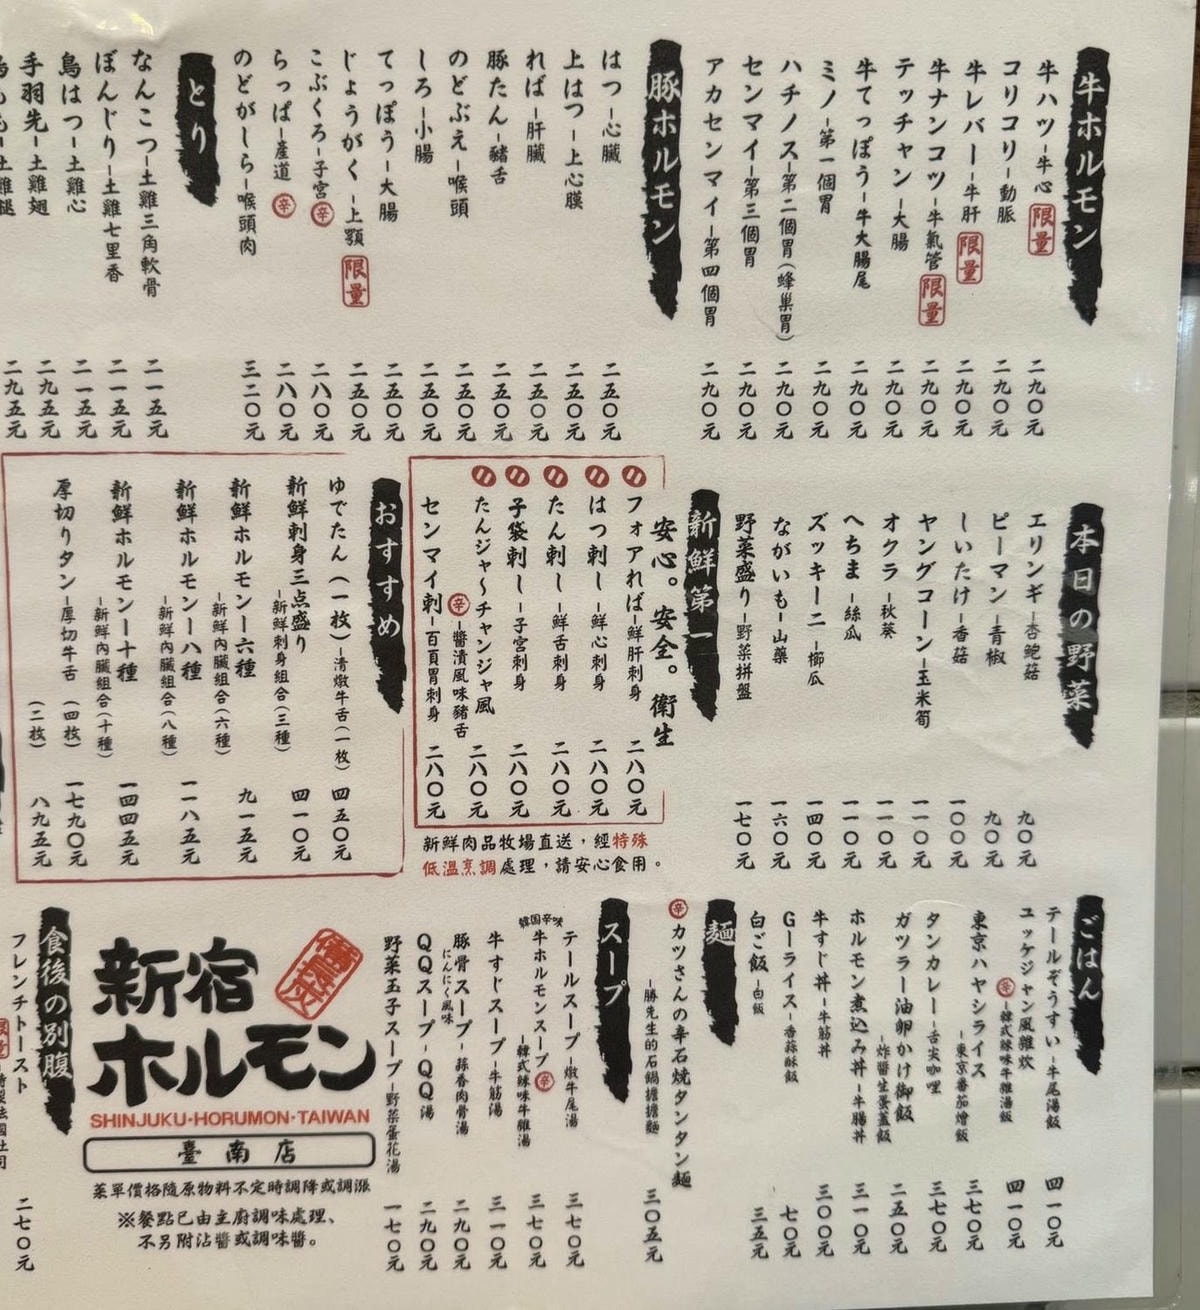 牛ホルモン
牛ハツ–牛心 限量 二九〇元
コリコリ–動脈 二九〇元
牛レバー–牛肝 限量 二九〇元
牛ナンコツ–牛氣管 限量 二九〇元
テッチャン–大腸 二九〇元
牛てっぽう–牛大腸尾 二九〇元
ミノ–第一個胃 二九〇元
ハチノス–第二個胃(蜂巢胃) 二九〇元
センマイ–第三個胃 二九〇元
アカセンマイ–第四個胃 二九〇元
豚ホルモン
はつ–心臟 二五〇元
上はつ–上心膜 二五〇元
れば–肝臟 二五〇元
豚たん–豬舌 二五〇元
のどぶえ–喉頭 二五〇元
しろ–小腸 二五〇元
てっぽう–大腸 二五〇元
じょうがく–上顎 限量 二五〇元
こぶくろ–子宮 辛 二八〇元
らっぱ–産道 辛 二八〇元
のどがしら–喉頭肉 三二〇元
とり
なんこつ–土雞三角軟骨 二一五元
ぼんじり–土雞七里香 二一五元
鳥はつ–土雞心 二一五元
手羽先–土雞翅 二九五元
二九五元
本日の野菜
エリンギ–杏鮑菇 九〇元
ピーマン–青椒 九〇元
しいたけ–香菇 一〇〇元
ヤングコーン–玉米筍 一一〇元
オクラ–秋葵 一一〇元
へちま–絲瓜 一一〇元
ズッキーニ–櫛瓜 一四〇元
ながいも–山藥 一六〇元
野菜盛り–野菜拼盤 一七〇元
新鮮第一
安心。安全。衛生
フォアれば–鮮肝刺身 二八〇元
はつ刺し–鮮心刺身 二八〇元
たん刺し–鮮舌刺身 二八〇元
子袋刺し–子宮刺身 二八〇元
たんジャ～チャンジャ風 二八〇元
辛–醬漬風味豬舌
センマイ刺–百頁胃刺身 二八〇元
新鮮肉品牧場直送，經特殊
低溫烹調處理，請安心食用。
おすすめ
ゆでたん(一枚)–清燉牛舌(一枚) 四五〇元
新鮮刺身三点盛り 四一〇元
–新鮮刺身組合(三種)
新鮮ホルモン–六種 九一五元
–新鮮內臟組合(六種)
新鮮ホルモン–八種 一一八五元
–新鮮內臟組合(八種)
新鮮ホルモン–十種 一四四五元
–新鮮內臟組合(十種)
厚切りタン–厚切牛舌(四枚) 一七九〇元
(二枚) 八九五元
ごはん
テールぞうすい–牛尾湯飯 四一〇元
ユッケジャン風雜炊 四一〇元
辛–韓式辣味牛雜湯飯
東京ハヤシライス 三七〇元
–東京番茄燴飯
タンカレー–舌尖咖哩 三七〇元
ガツラー油卵かけ御飯 二五〇元
–炸醬生蛋蓋飯
ホルモン煮込み丼–牛腸丼 三一〇元
牛すじ丼–牛筋丼 三〇〇元
Gーライス–香蒜酥飯 七〇元
白ご飯–白飯 三五元
麺
辛 カツさんの辛石焼タンタン麺 三〇五元
–勝先生的石鍋擔擔麵
スープ
テールスープ–燉牛尾湯 三七〇元
韓国辛味
牛ホルモンスープ 辛 三七〇元
–韓式辣味牛雜湯
牛すじスープ–牛筋湯 三一〇元
豚骨スープ–蒜香肉骨湯 二九〇元
にんにく風味
QQスープ–QQ湯 二九〇元
野菜玉子スープ–野菜蛋花湯 一七〇元
新宿
ホルモン
SHINJUKU·HORUMON·TAIWAN
臺南店
菜單價格隨原物料不定時調降或調漲
※餐點已由主廚調味處理、
不另附沾醬或調味醬。
食後の別腹
フレンチトースト 二七〇元